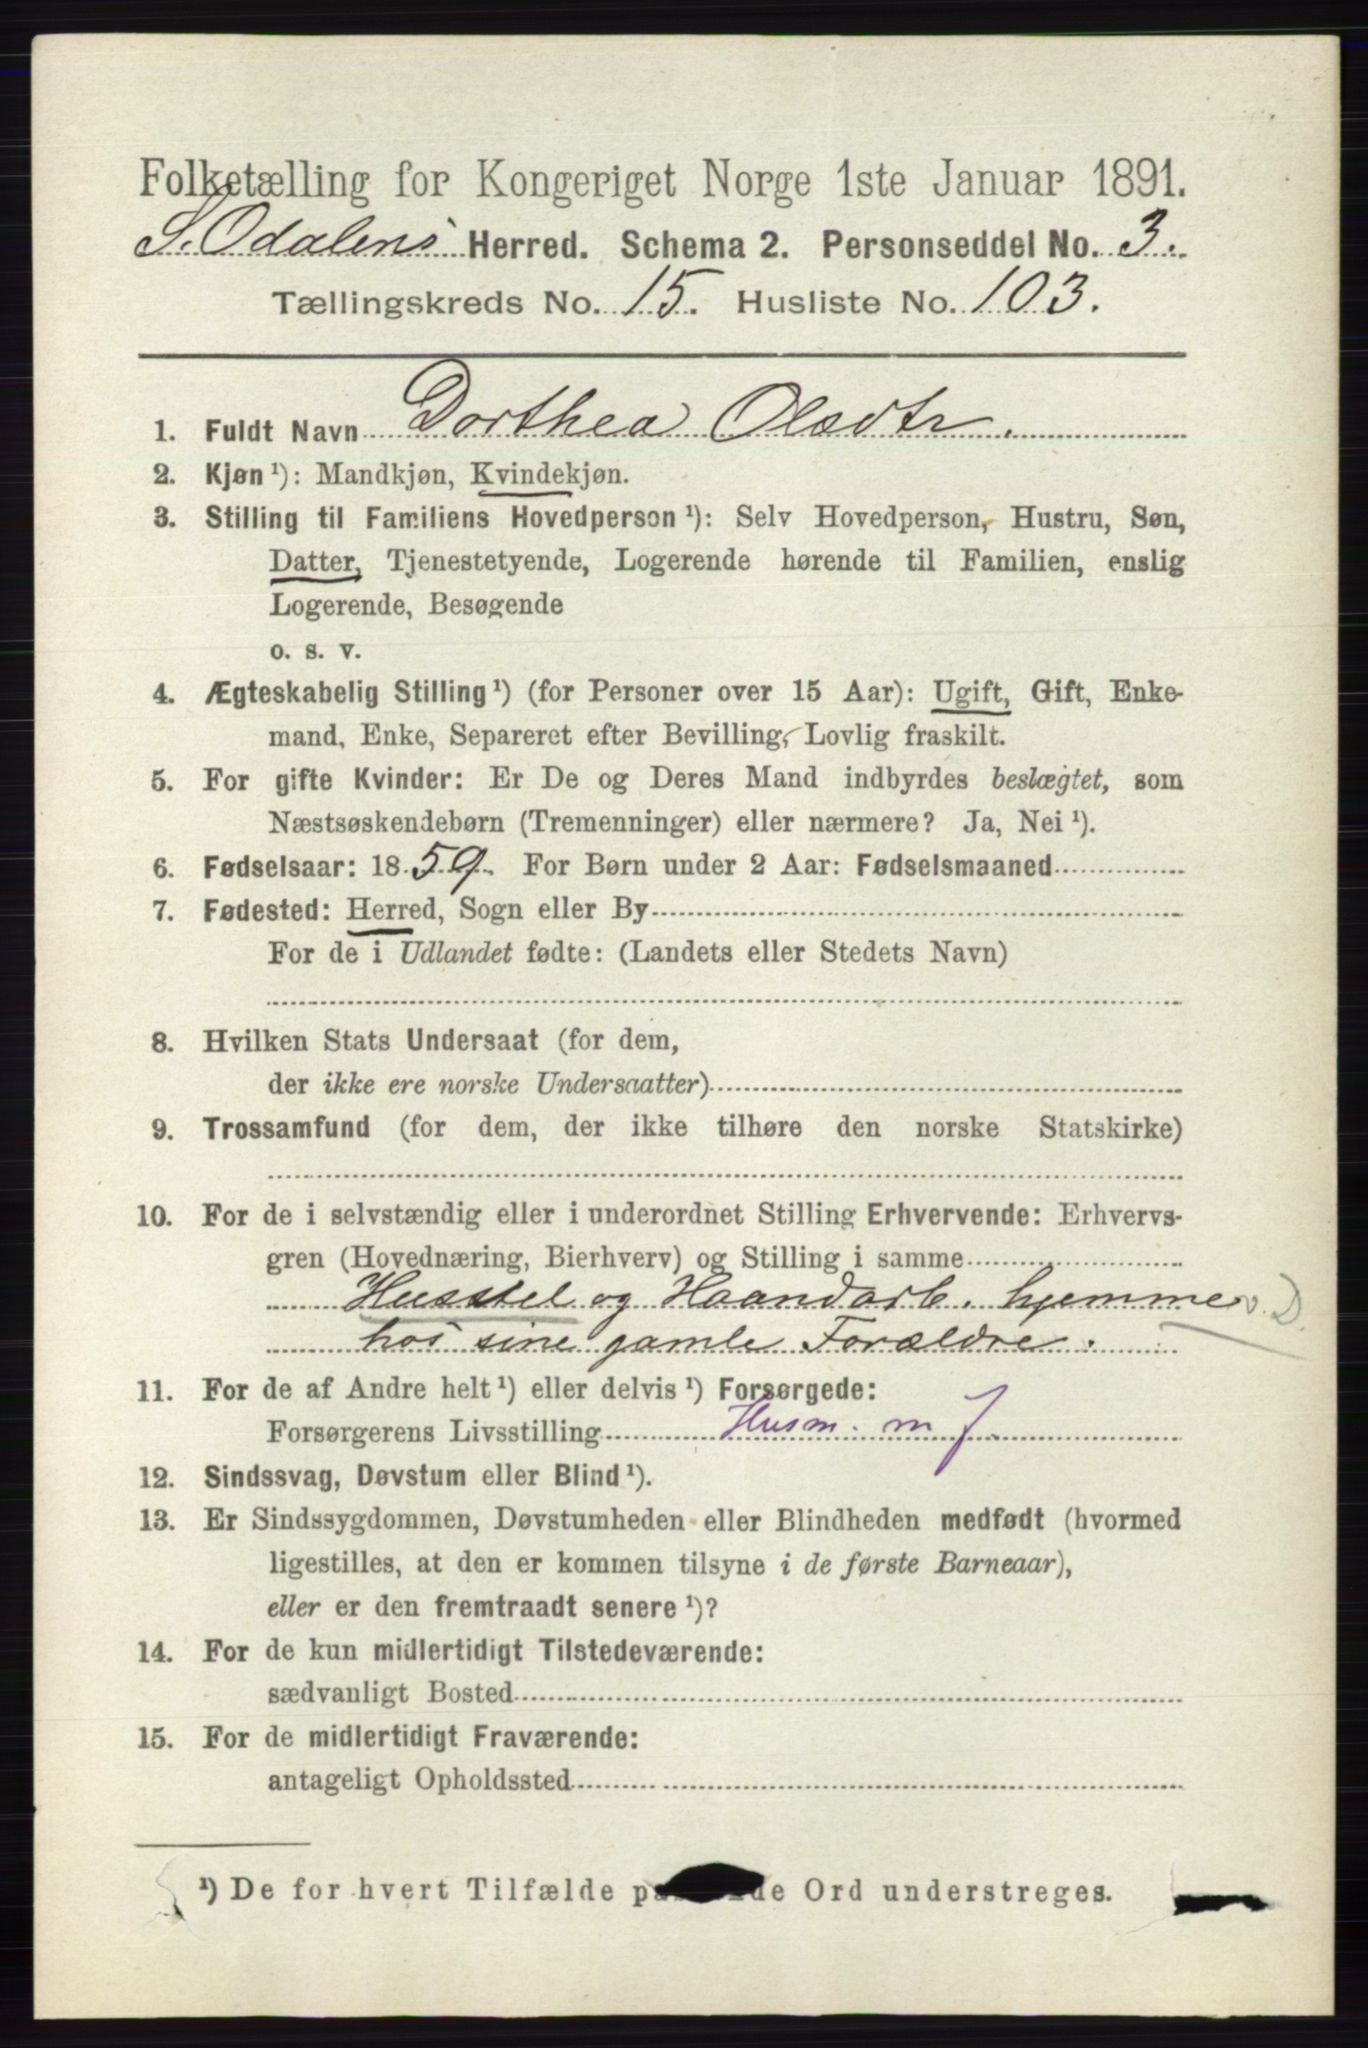 Folketælling for Kongeriget Norge 1ste Januar 1891.
S. Odalens Herred. Schema 2. Personseddel No. 3.
Tællingskreds No. 15. Husliste No. 103.
1. Fuldt Navn Dorthea Olsdtr.
2. Kjøn ¹): Mandkjøn, Kvindekjøn.
3. Stilling til Familiens Hovedperson ¹): Selv Hovedperson, Hustru, Søn,
Datter, Tjenestetyende, Logerende hørende til Familien, enslig
Logerende, Besøgende
o. s. v.
4. Ægteskabelig Stilling ¹) (for Personer over 15 Aar): Ugift, Gift, Enke-
mand, Enke, Separeret efter Bevilling, Lovlig fraskilt.
5. For gifte Kvinder: Er De og Deres Mand indbyrdes beslægtet, som
Næstsøskendebørn (Tremenninger) eller nærmere? Ja, Nei ¹).
6. Fødselsaar: 1859. For Børn under 2 Aar: Fødselsmaaned
7. Fødested: Herred, Sogn eller By
For de i Udlandet fødte: (Landets eller Stedets Navn)
8. Hvilken Stats Undersaat (for dem,
der ikke ere norske Undersaatter)
9. Trossamfund (for dem, der ikke tilhøre den norske Statskirke)
10. For de i selvstændig eller i underordnet Stilling Erhvervende: Erhvervs-
gren (Hovednæring, Bierhverv) og Stilling i samme
Husstel og Haandarb. hjemme v. D.
hos sine gamle Forældre.
11. For de af Andre helt ¹) eller delvis ¹) Forsørgede:
Forsørgerens Livsstilling Husm. m J.
12. Sindssvag, Døvstum eller Blind ¹).
13. Er Sindssygdommen, Døvstumheden eller Blindheden medfødt (hvormed
ligestilles, at den er kommen tilsyne i de første Barneaar),
eller er den fremtraadt senere ¹)?
14. For de kun midlertidigt Tilstedeværende:
sædvanligt Bosted
15. For de midlertidigt Fraværende:
antageligt Opholdssted
¹) De for hvert Tilfælde Ord understreges.